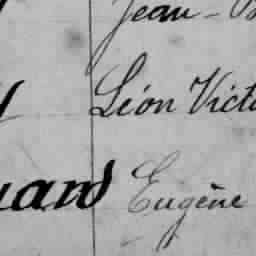 Jean-
Léon Victo
uard Eugène